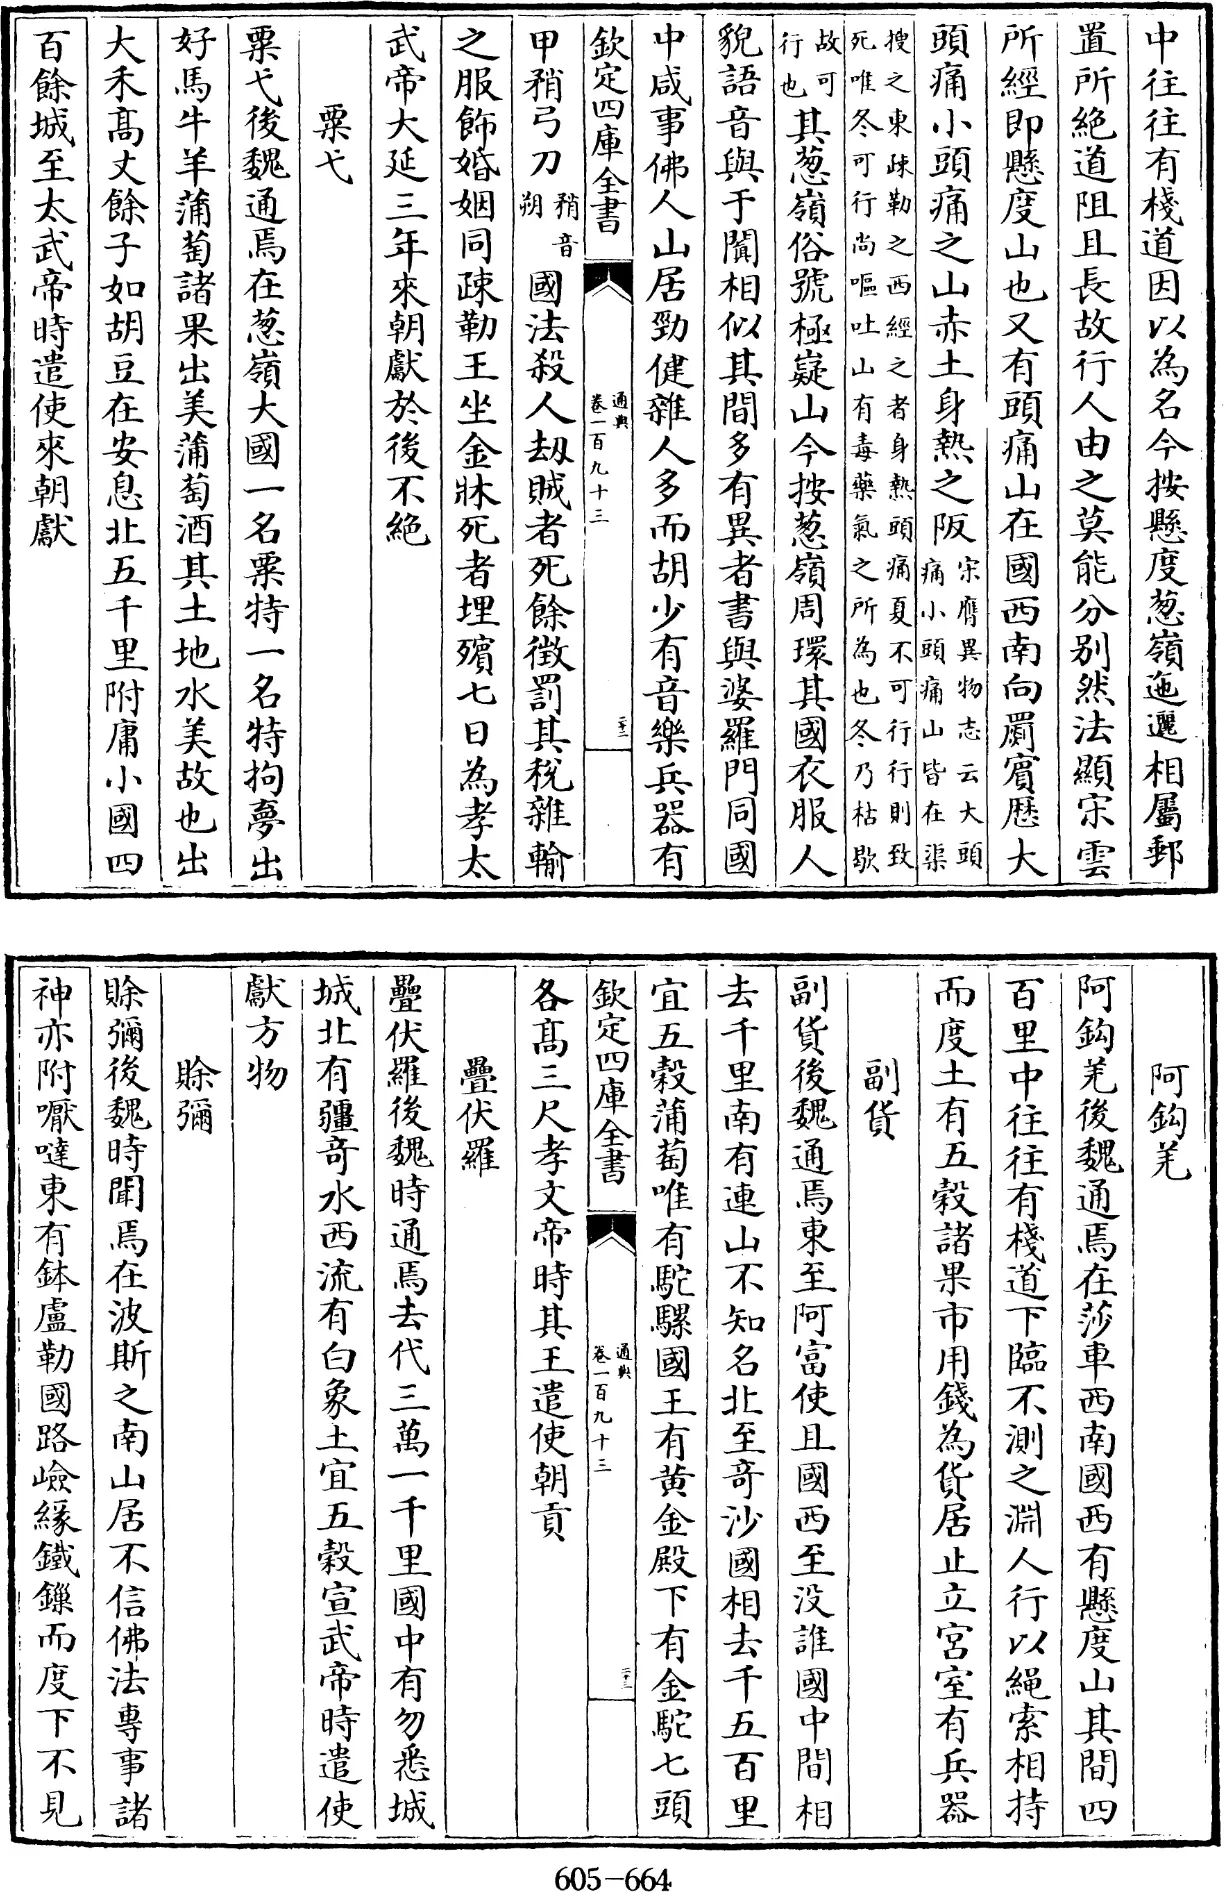 中往往有棧道因以為名今按懸度葱嶺迤邐相屬郵
置所絶道阻且長故行人由之莫能分别然法顯宋雲
所經即懸度山也又有頭痛山在國西南向罽賓歷大
頭痛小頭痛之山赤土身熱之阪宋膺異物志云大頭
痛小頭痛山皆在渠
搜之東疎勒之西經之者身熱頭痛夏不可行行則致
死唯冬可行尚嘔吐山有毒藥氣之所為也冬乃枯歇
故可
行也其葱嶺俗號極嶷山今按葱嶺周環其國衣服人
貌語音與于闐相似其間多有異者書與婆羅門同國
中咸事佛人山居勁健雜人多而胡少有音樂兵器有
欽定四庫全書
通典
卷一百九十三
二十二
甲矟弓刀矟音
朔國法殺人劫賊者死餘徴罰其税雜輸
之服飾婚姻同疎勒王坐金牀死者埋殯七日為孝太
武帝大延三年來朝獻於後不絶
粟弋
粟弋後魏通焉在葱嶺大國一名粟特一名特拘夢出
好馬牛羊蒲萄諸果出美蒲萄酒其土地水美故也出
大禾髙丈餘子如胡豆在安息北五千里附庸小國四
百餘城至太武帝時遣使來朝獻
阿鈎羌
阿鈎羌後魏通焉在莎車西南國西有懸度山其間四
百里中往往有棧道下臨不測之淵人行以繩索相持
而度土有五穀諸果市用錢為貨居止立宫室有兵器
副貨
副貨後魏通焉東至阿富使且國西至没誰國中間相
去千里南有連山不知名北至奇沙國相去千五百里
宜五穀蒲萄唯有駝騾國王有黄金殿下有金駝七頭
欽定四庫全書
通典
卷一百九十三
二十三
各髙三尺孝文帝時其王遣使朝貢
疊伏羅
疊伏羅後魏時通焉去代三萬一千里國中有勿悉城
城北有疆奇水西流有白象土宜五穀宣武帝時遣使
獻方物
賖彌
賖彌後魏時聞焉在波斯之南山居不信佛法專事諸
神亦附嚈噠東有鉢盧勒國路嶮緣鐵鏁而度下不見
605-664